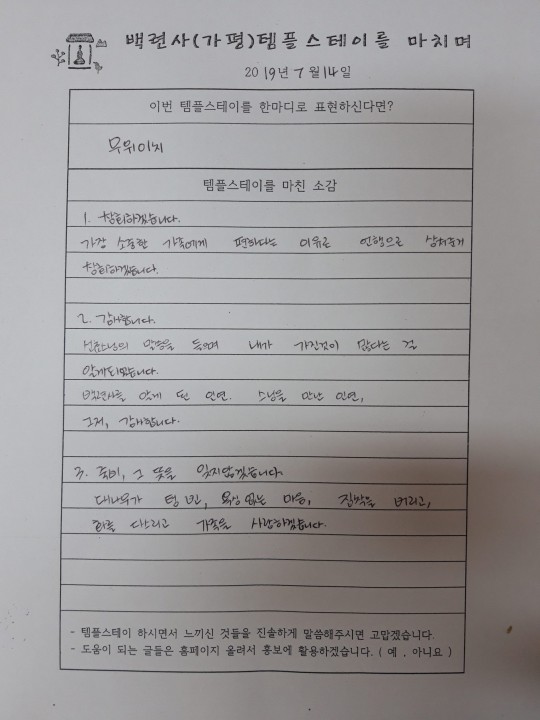 백련사(가평)템플스테이를 마치며
2019년 7월 14일
이번 템플스테이를 한마디로 표현하신다면?
무위이치
템플스테이를 마친 소감
1. 참회하겠습니다.
가장 소중한 가족에게 편하다는 이유로 언행으로 상처준거
참회하겠습니다.
2. 감사합니다.
말씀을 들으며 내가 가진것이 많다는 걸
알게되었습니다.
백련사를 알게 된 인연. 스님을 만난 인연,
그저, 감사합니다.
3. 죽비, 그 뜻을 잊지않겠습니다.
대나무가 텅 빈, 욕심 없는 마음, 집착을 버리고,
화를 다스리고 가족을 사랑하겠습니다.
- 템플스테이 하시면서 느끼신 것들을 진솔하게 말씀해주시면 고맙겠습니다.
- 도움이 되는 글들은 홈페이지 올려서 홍보에 활용하겠습니다. ( 예 , 아니요 )